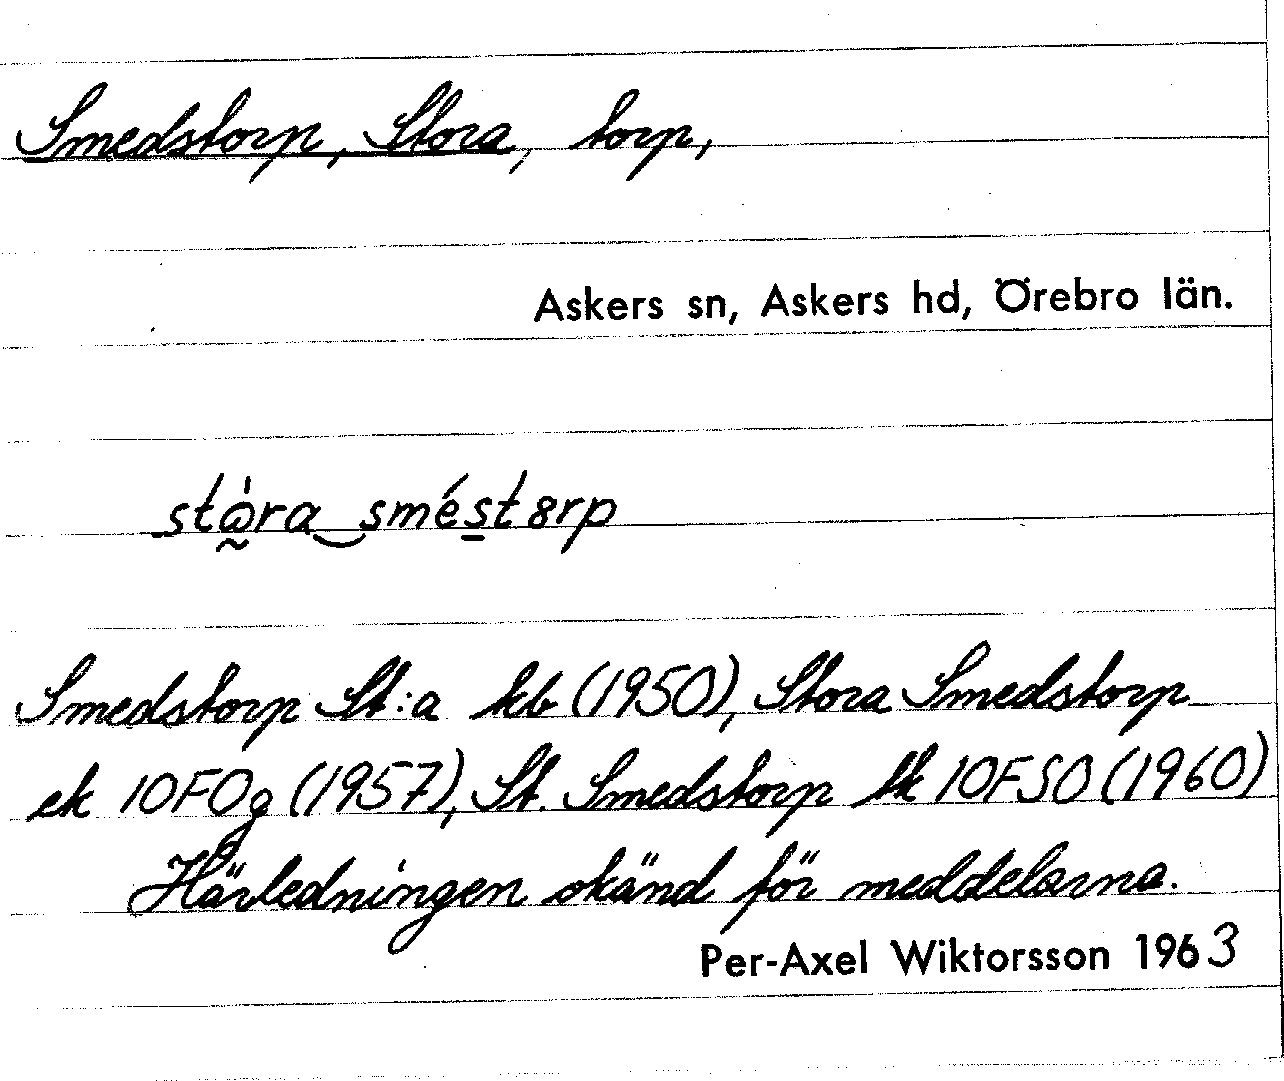 Smedstorp, Stora, torp,
Askers sn, Askers hd, Örebro län.
stòra smést8rp
Smedstorp St:a kb (1950), Stora Smedstorp
ek 10F0g (1957), St. Smedstorp tk 10FSO (1960)
Härledningen okänd för meddelarna.
Per-Axel Wiktorsson 1963